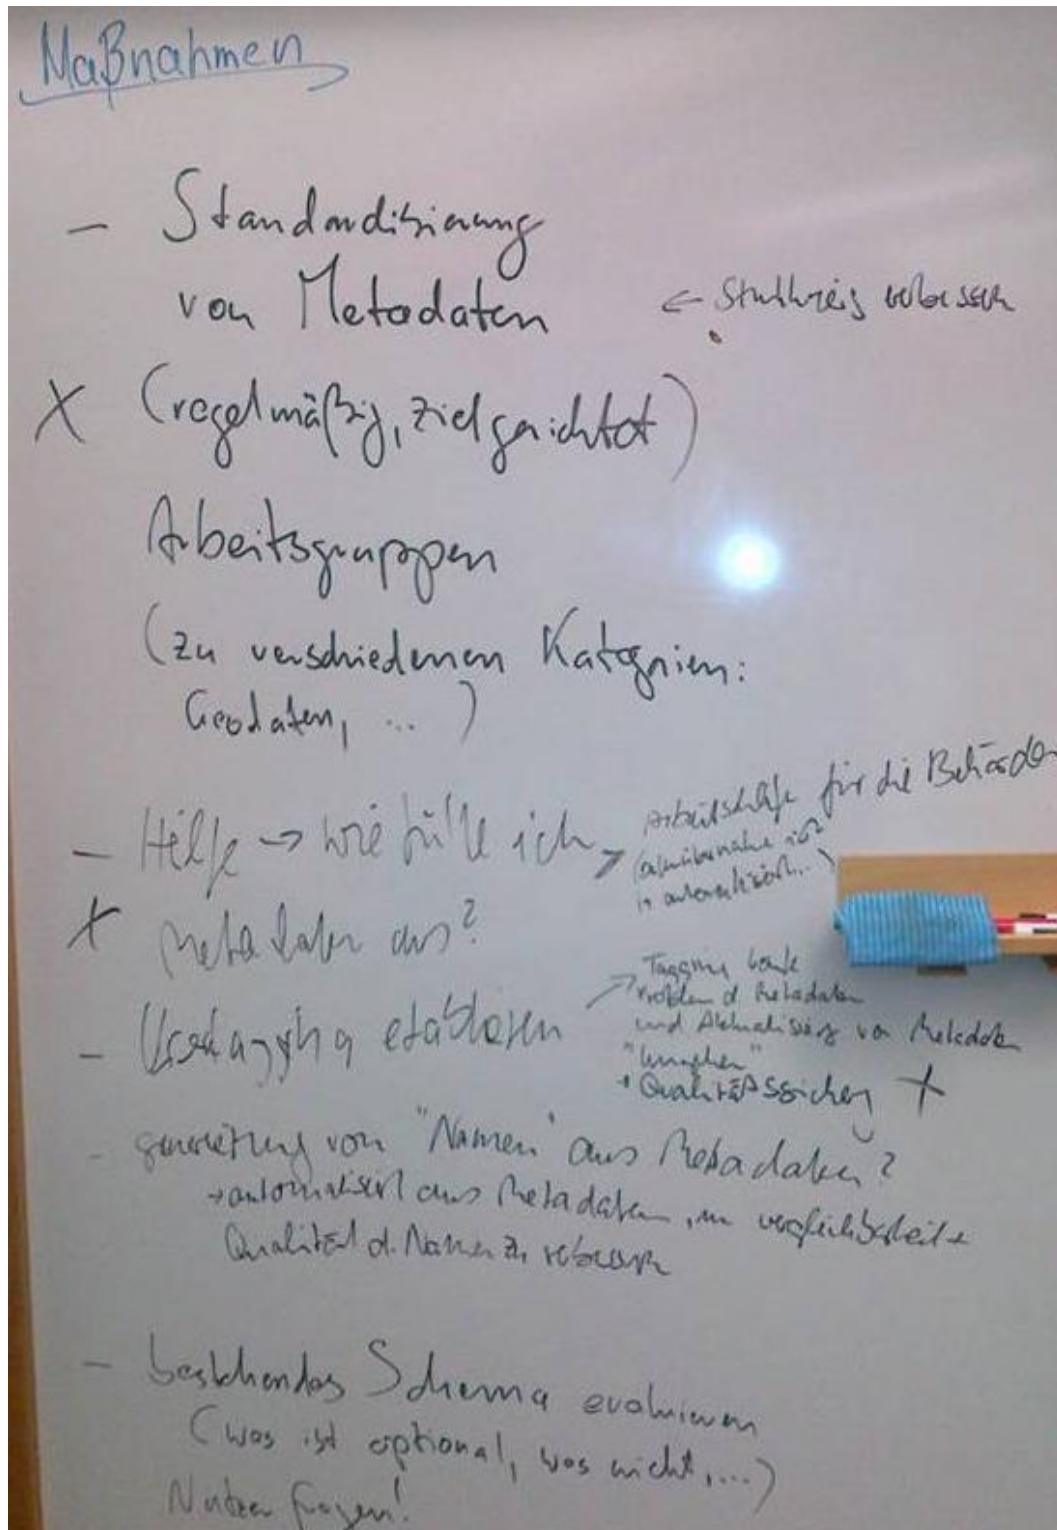 Maßnahmen
- Standardisierung
von Metadaten
←
X (regelmäßig, zielgerichtet)
Arbeitsgruppen
(zu verschiedenen Kategorien:
Geodaten, ...)
- Hilfe → wie fülle ich
X Metadaten aus?
→ Arbeitshilfe für die Behörden
- etablieren
→ Tagging
Problem d. Metadaten
und Aktualisierg von Metadaten
"umgehen"
Qualitätssicherg X
- Generierung von "Namen" aus Metadaten?
→ automatisiert aus Metadaten, um Vergleichbarkeit +
Qualität d. Namen zu verbessern
- bestehendes Schema evaluieren
(was ist optional, was nicht, ...)
Nutzer fragen!